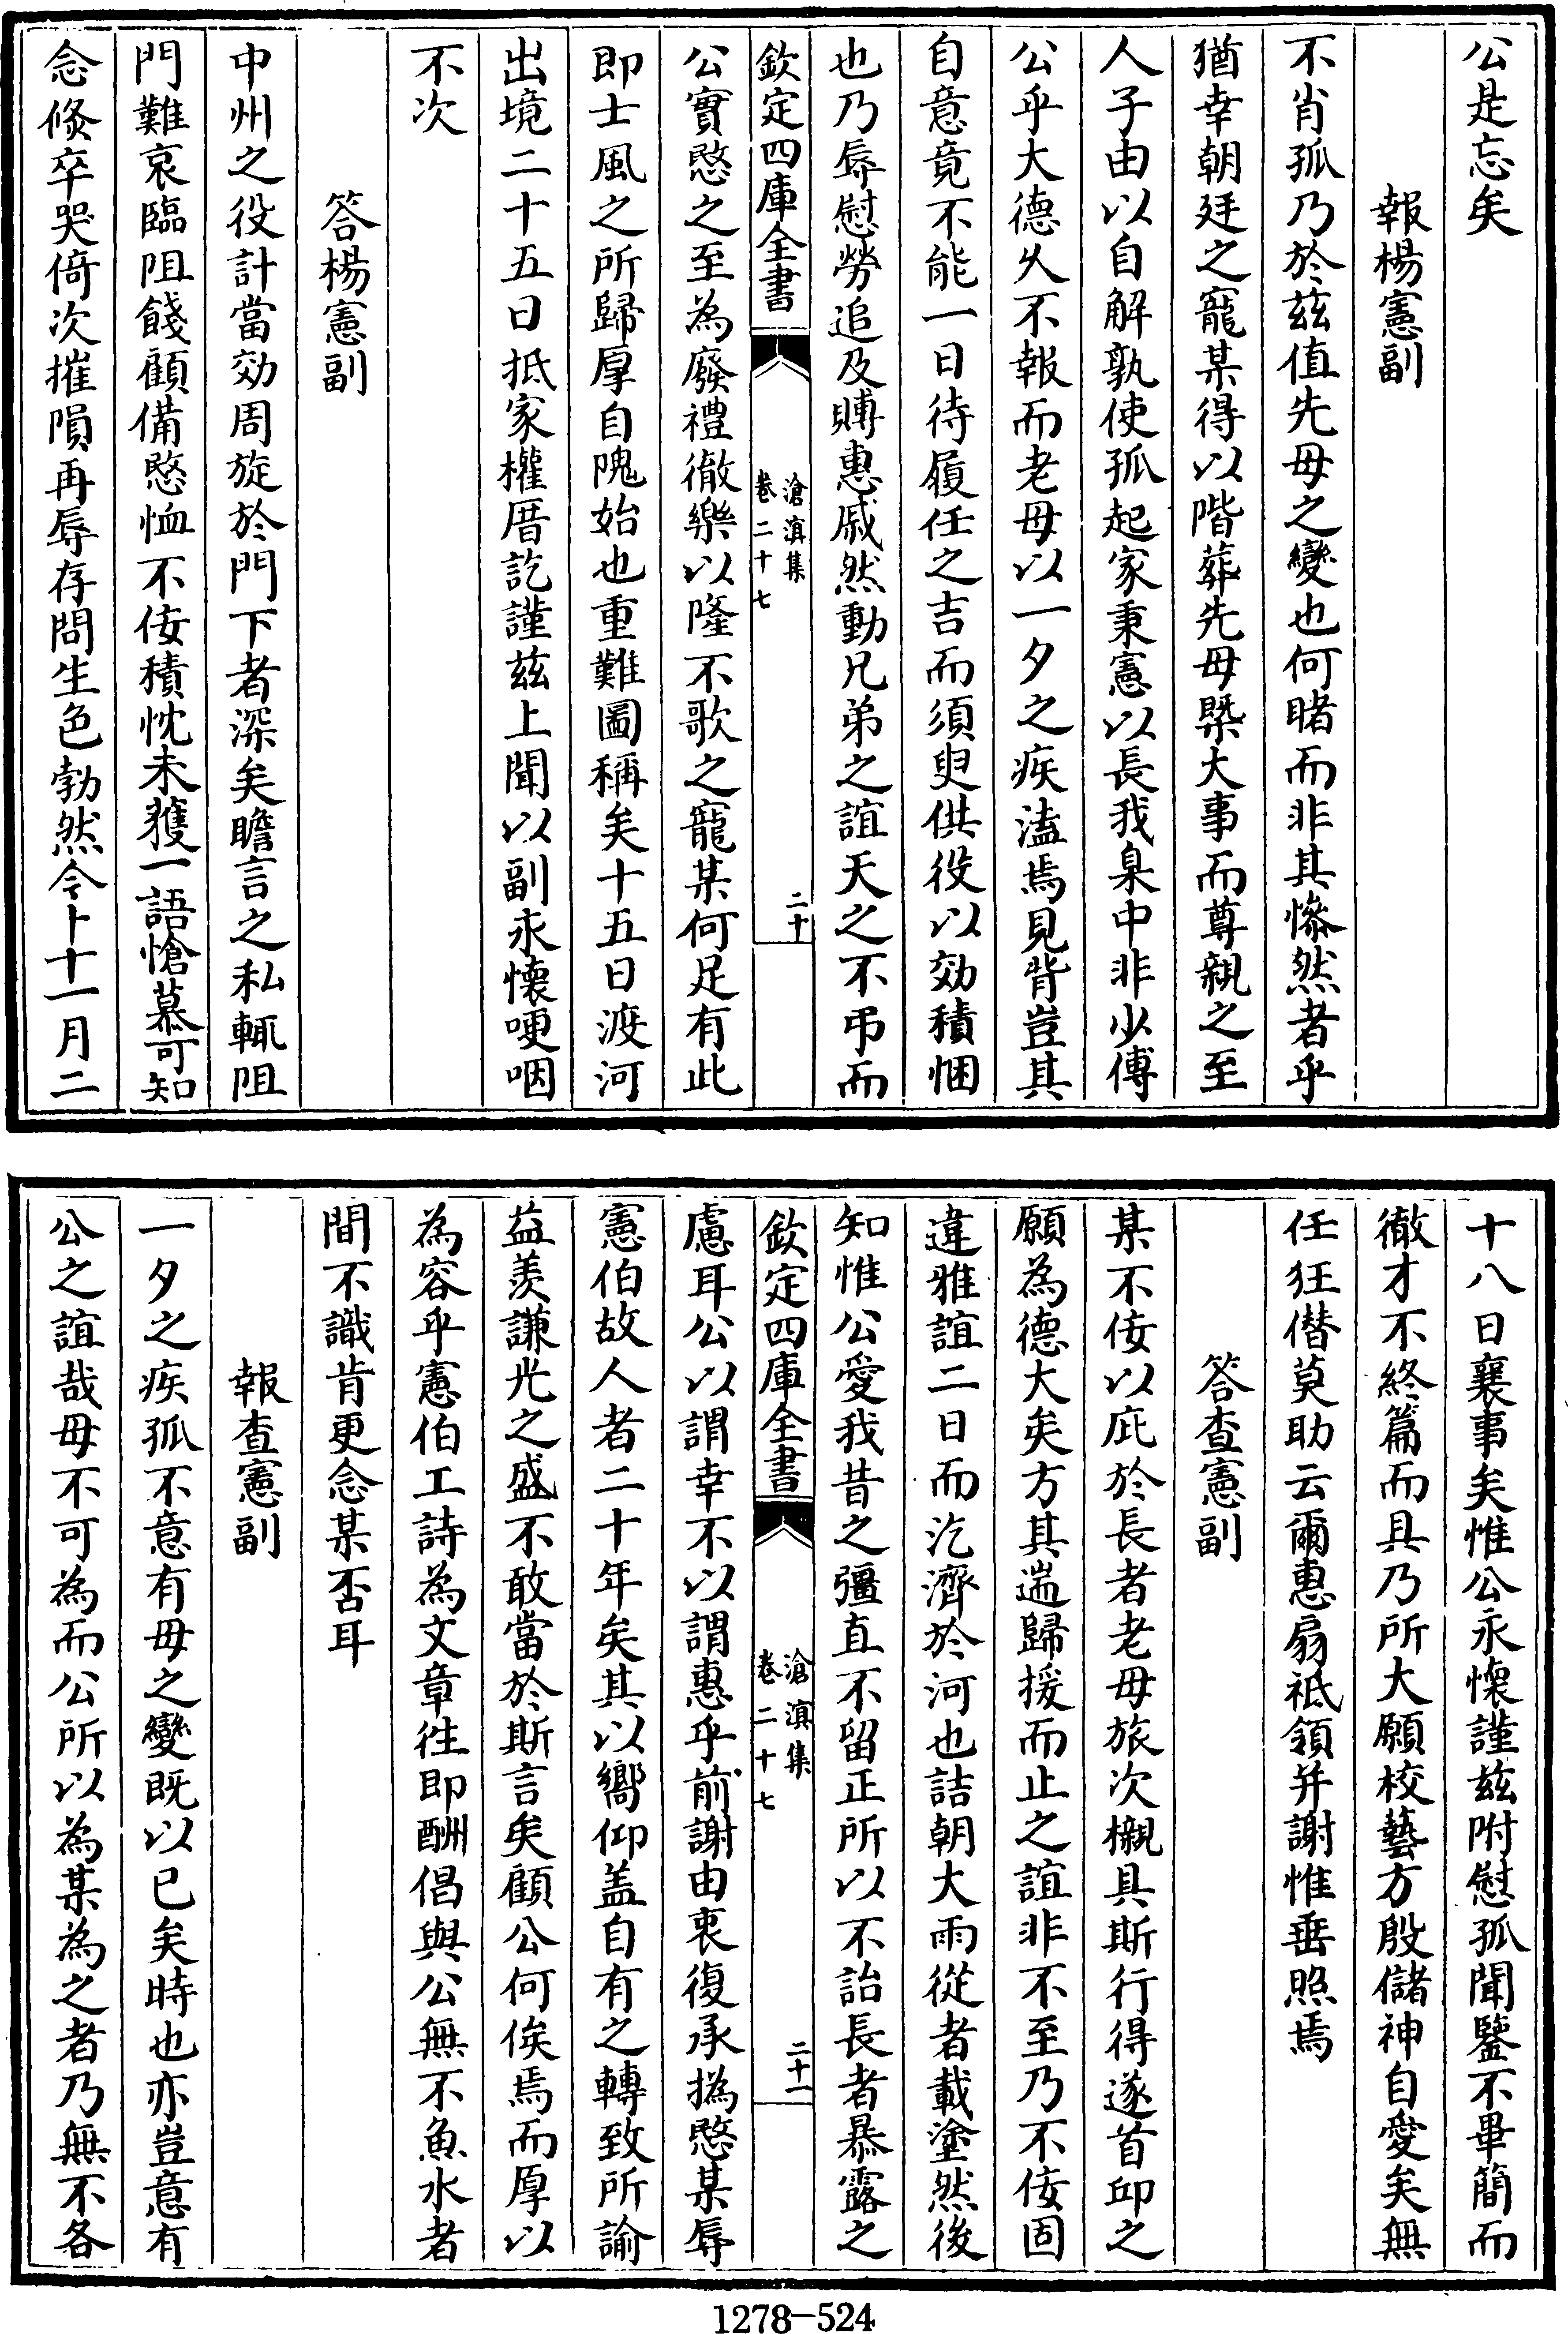 公是忘矣
報楊憲副
不肖孤乃於兹值先母之變也何睹而非其慘然者乎
猶幸朝廷之寵某得以階葬先母槩大事而尊親之至
人子由以自解孰使孤起家秉憲以長我臬中非少傅
公乎大德久不報而老母以一夕之疾溘焉見背豈其
自意竟不能一日待履任之吉而須臾供役以効積悃
也乃辱慰勞追及賻惠戚然動兄弟之誼天之不弔而
欽定四庫全書
滄溟集
卷二十七
二十
公實愍之至為廢禮徹樂以隆不歌之寵某何足有此
即士風之所歸厚自隗始也重難圖稱矣十五日渡河
出境二十五日抵家權厝訖謹兹上聞以副永懷哽咽
不次
答楊憲副
中州之役計當効周旋於門下者深矣瞻言之私輒阻
門難哀臨阻餞顧備愍恤不佞積忱未獲一語愴慕可知
念倐卒哭倚次摧隕再辱存問生色勃然今卜十一月二
十八日襄事矣惟公永懷謹兹附慰孤聞鑒不畢簡而
徹才不終篇而具乃所大願校藝方殷儲神自愛矣無
任狂僭莫助云爾惠扇祗領并謝惟垂照焉
答查憲副
某不佞以庇於長者老母旅次櫬具斯行得遂首邱之
願為德大矣方其遄歸援而止之誼非不至乃不佞固
違雅誼二日而汔濟於河也詰朝大雨從者載塗然後
知惟公愛我昔之彊直不留正所以不詒長者暴露之
欽定四庫全書
滄溟集
卷二十七
二十一
慮耳公以謂幸不以謂惠乎前謝由衷復承撝愍某辱
憲伯故人者二十年矣其以嚮仰盖自有之轉致所諭
益羨謙光之盛不敢當於斯言矣顧公何俟焉而厚以
為容乎憲伯工詩為文章徃即酬倡與公無不魚水者
間不識肯更念某否耳
報查憲副
一夕之疾孤不意有母之變既以已矣時也亦豈意有
公之誼哉母不可為而公所以為某為之者乃無不各
1278-524